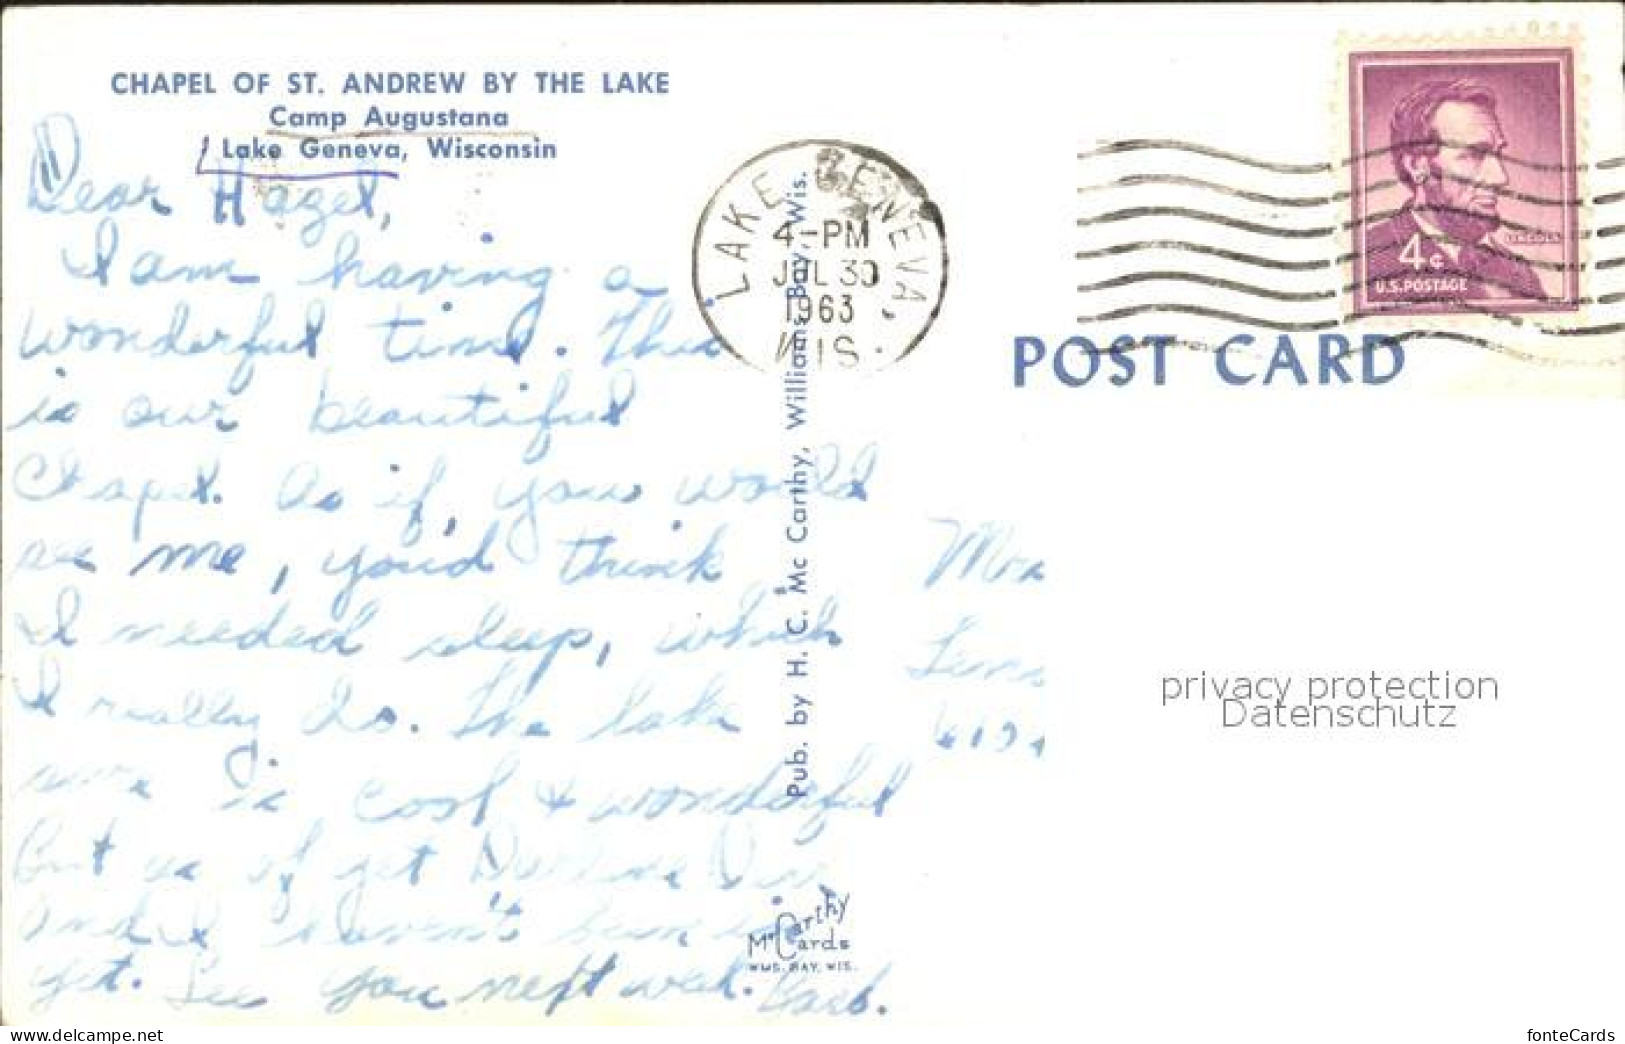 CHAPEL OF ST. ANDREW BY THE LAKE
Camp Augustana
Lake Geneva, Wisconsin
Dear Hazel,
I am having a
wonderful time. This
is our beautiful
Chapel. As if, you would
see me, you'd think
I needed sleep, which
I really do. The lake
sure is cool & wonderful
But as of yet Darlene
and I haven't been in
yet. See you next week. Barb.
Pub. by H. C. Mc Carthy, Williams Bay, Wis.
McCarthy
Cards
WMS. BAY, WIS.
LAKE GENEVA,
4-PM
JUL 30
1963
WIS.
LINCOLN
4¢
U.S. POSTAGE
POST CARD
privacy protection
Datenschutz
©www.oldthing.de
fonteCards